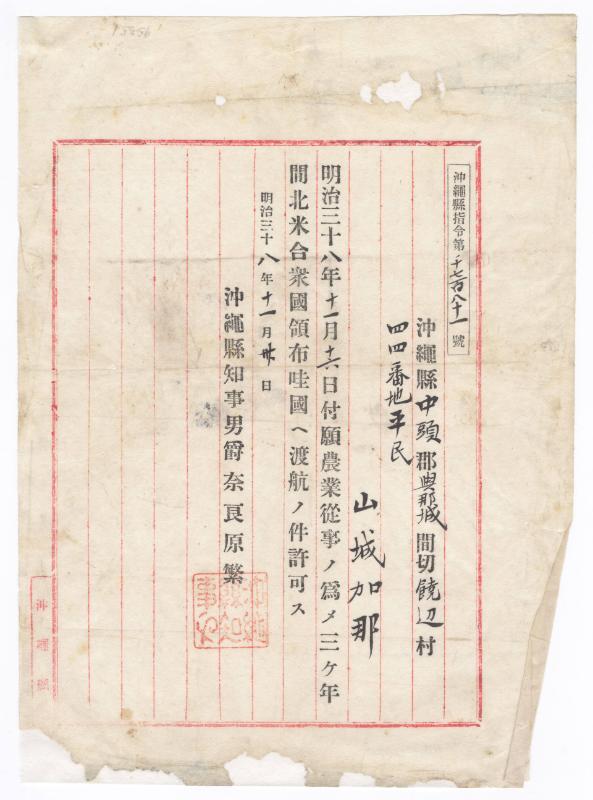 沖繩縣指令第千七百八十一號
沖繩縣中頭郡與那城間切饒辺村
四四番地平民
山城加那
明治三十八年十一月十六日付願農業從事ノ爲メ三ケ年
間北米合衆國領布哇國ヘ渡航ノ件許可ス
明治三十八年十一月卅日
沖繩縣知事男爵奈良原繁
沖繩縣